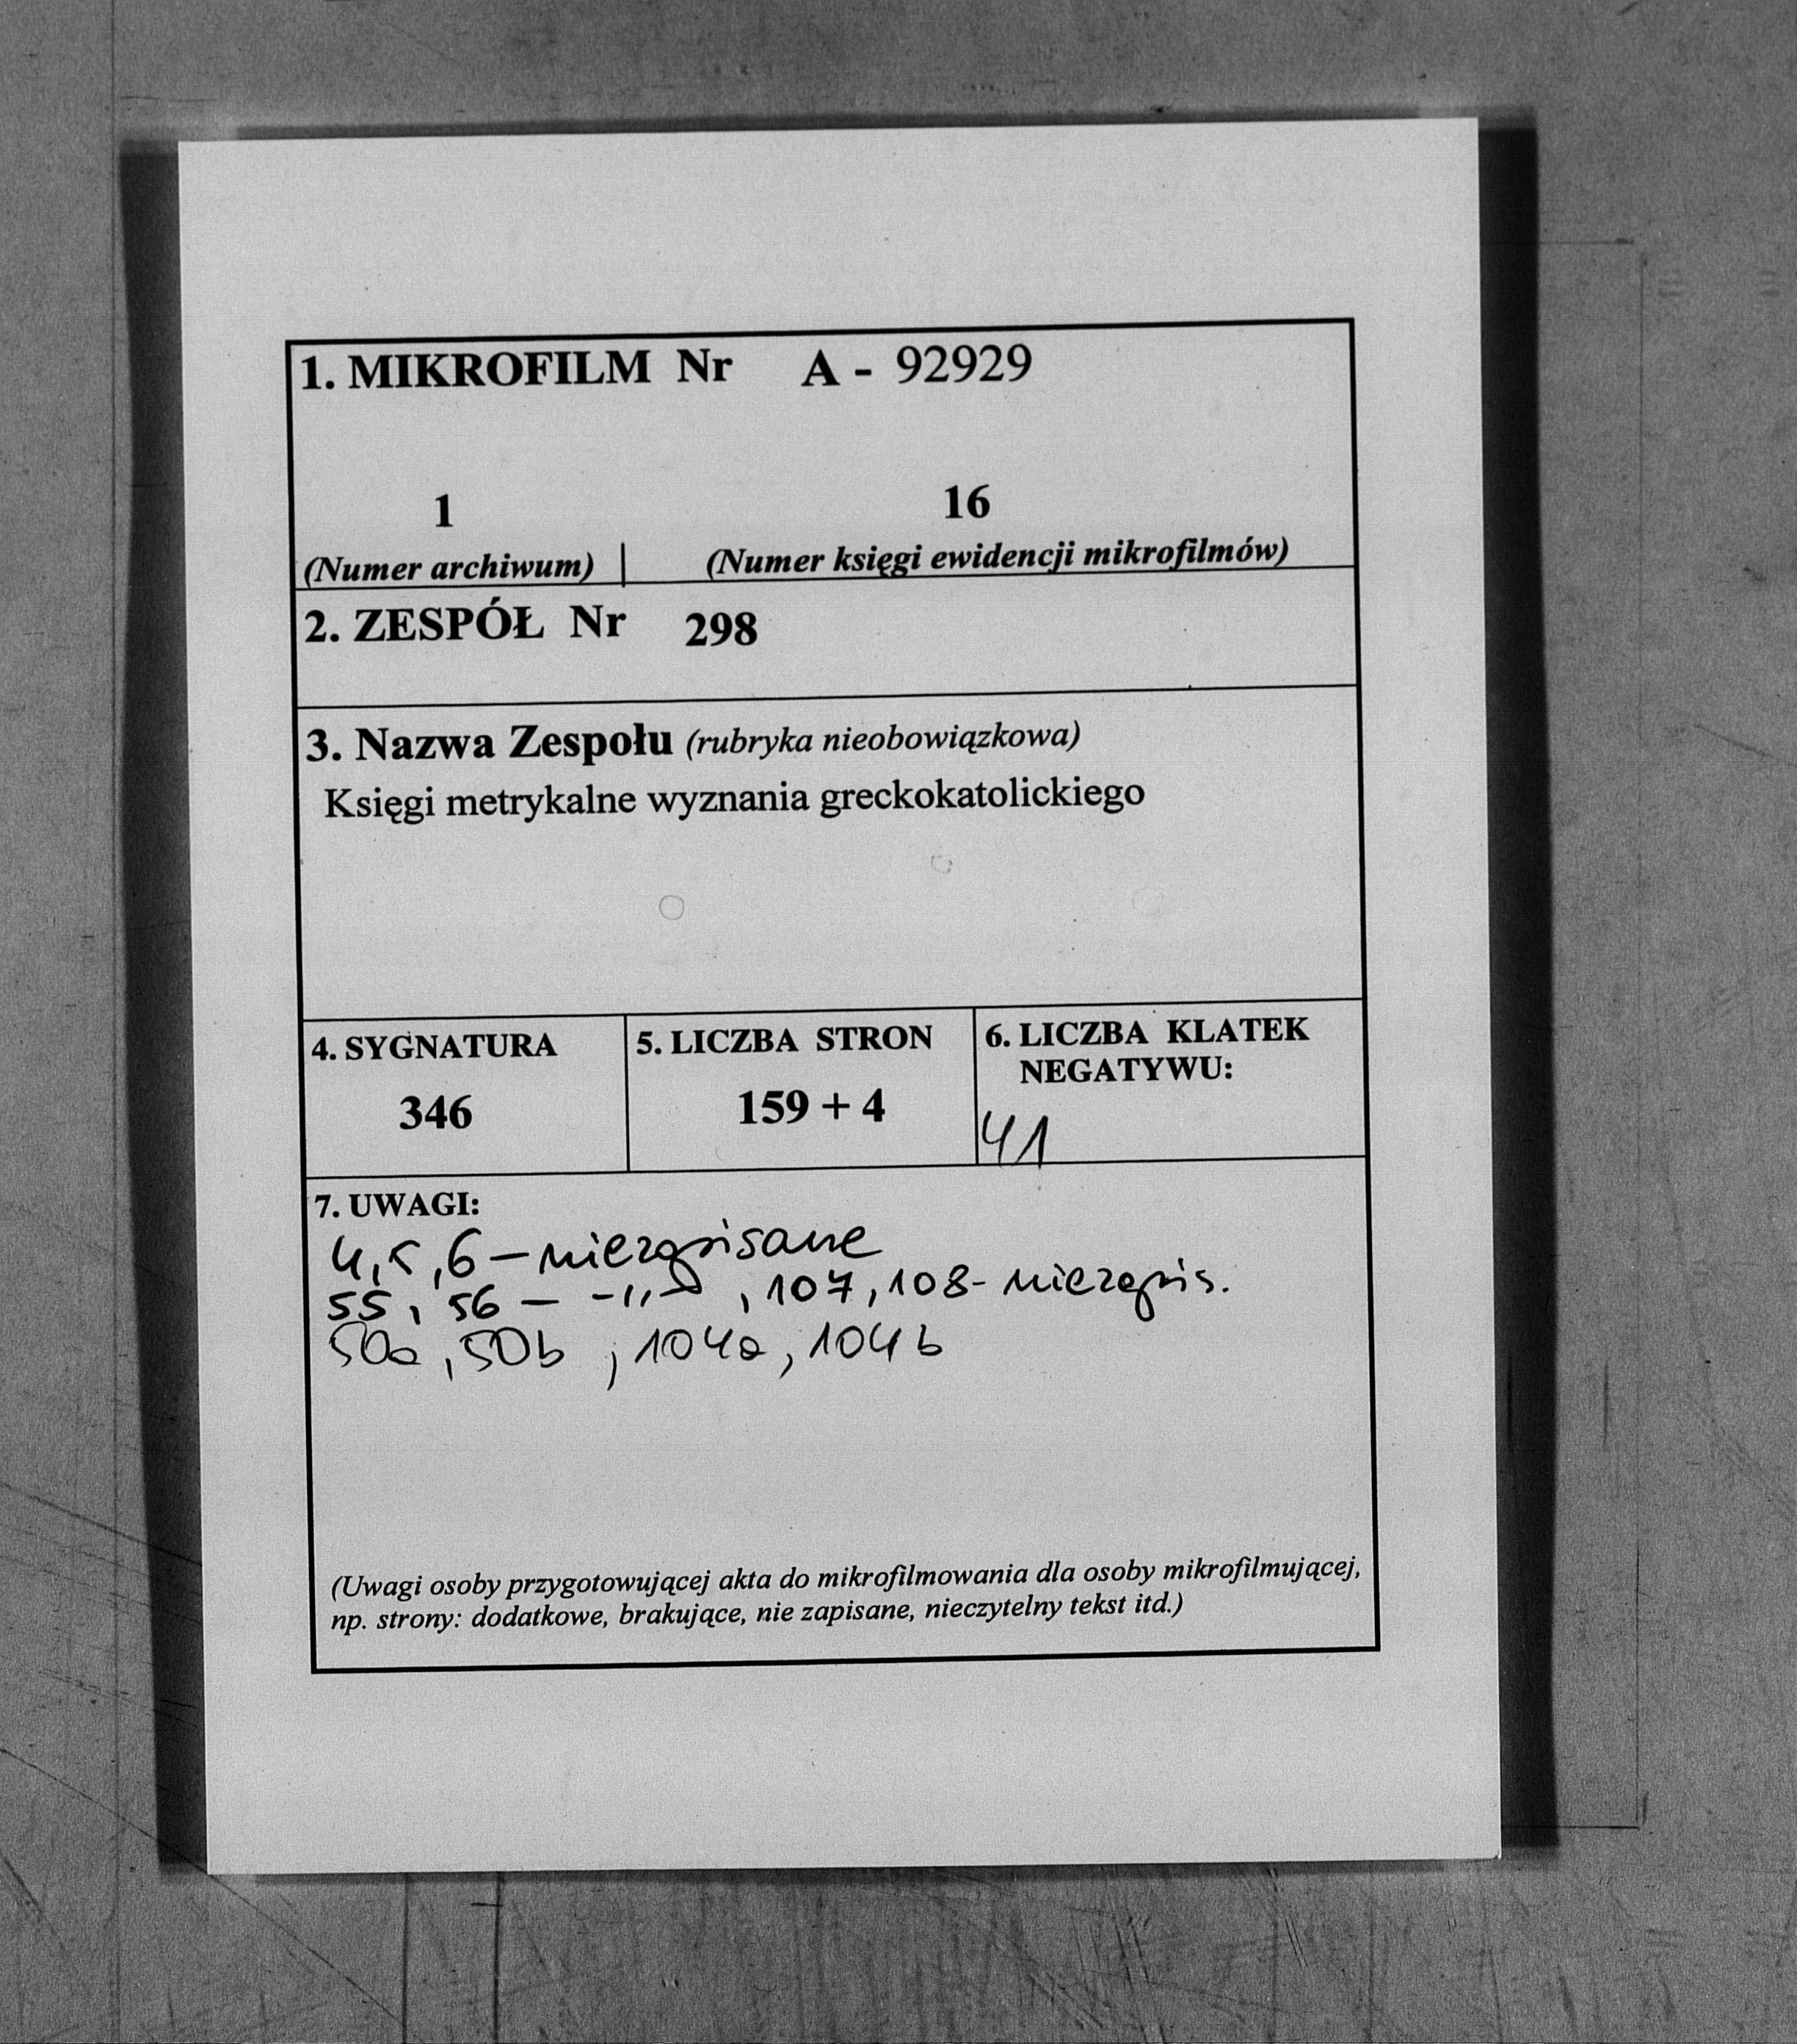 1. MIKROFILM Nr A - 92929
1 16
(Numer archiwum) | (Numer księgi ewidencji mikrofilmów)
2. ZESPÓŁ Nr 298
3. Nazwa Zespołu (rubryka nieobowiązkowa)
Księgi metrykalne wyznania greckokatolickiego
4. SYGNATURA
346
5. LICZBA STRON
159 + 4
6. LICZBA KLATEK
NEGATYWU:
41
7. UWAGI:
4,5,6 – niezapisane
55, 56 – -"- , 107, 108 - niezapis.
50a, 50b ; 104a, 104b
(Uwagi osoby przygotowującej akta do mikrofilmowania dla osoby mikrofilmującej,
np. strony: dodatkowe, brakujące, nie zapisane, nieczytelny tekst itd.)